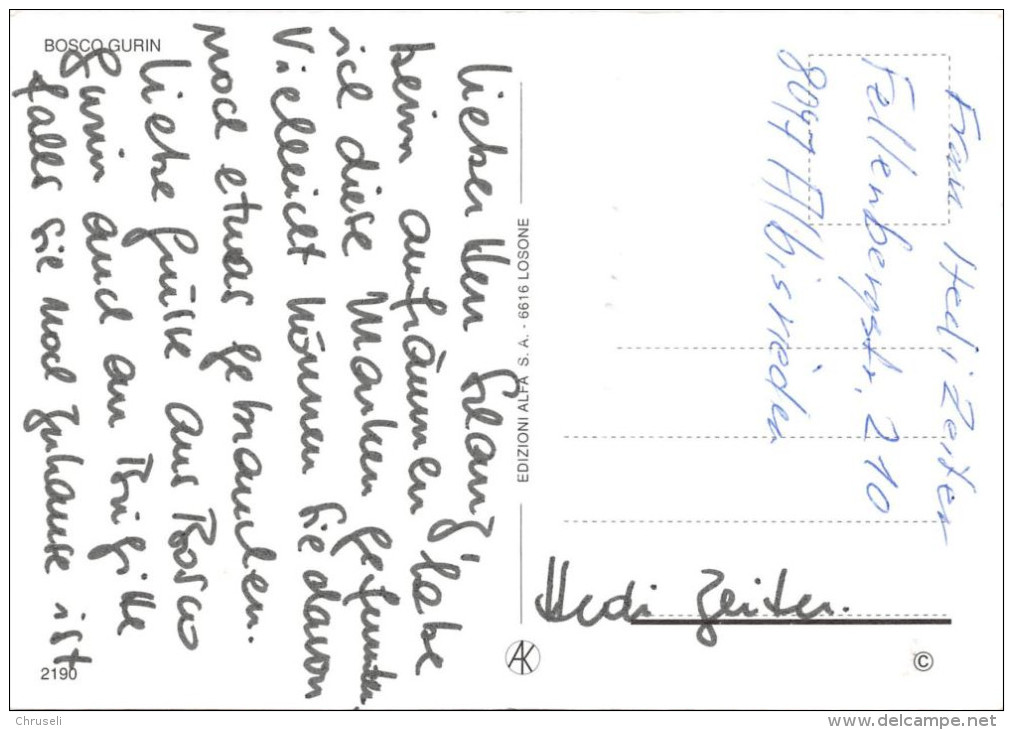 BOSCO GURIN
Lieber Herr Schanz, habe
beim aufräumen
ich diese Marken gefunden
Vielleicht können Sie davon
noch etwas gebrauchen.
Liebe Grüsse aus Bosco
Gurin auch an Brigitte
falls sie noch Zuhause ist
2190
EDIZIONI ALFA S. A. - 6616 LOSONE
AK
Frau Hedi Zeiter
Fellenbergstr. 210
8047 Albisrieden
Hedi Zeiter.
©
Chruseli
www.delcampe.net